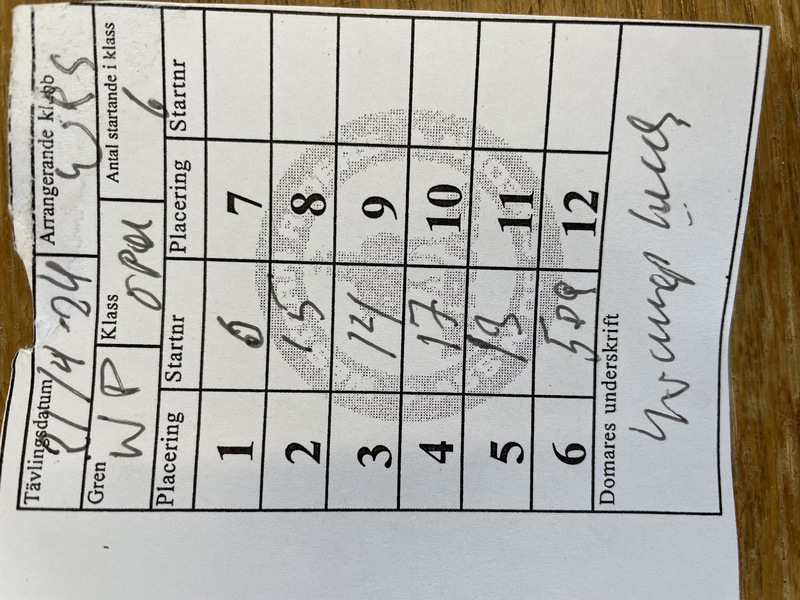 Tävlingsdatum Arrangerande klubb
21/4-24 WRS
Gren Klass Antal startande i klass
WP open 6
Placering Startnr Placering Startnr
1 6 7
2 15 8
3 14 9
4 17 10
5 13 11
6 509 12
Domares underskrift